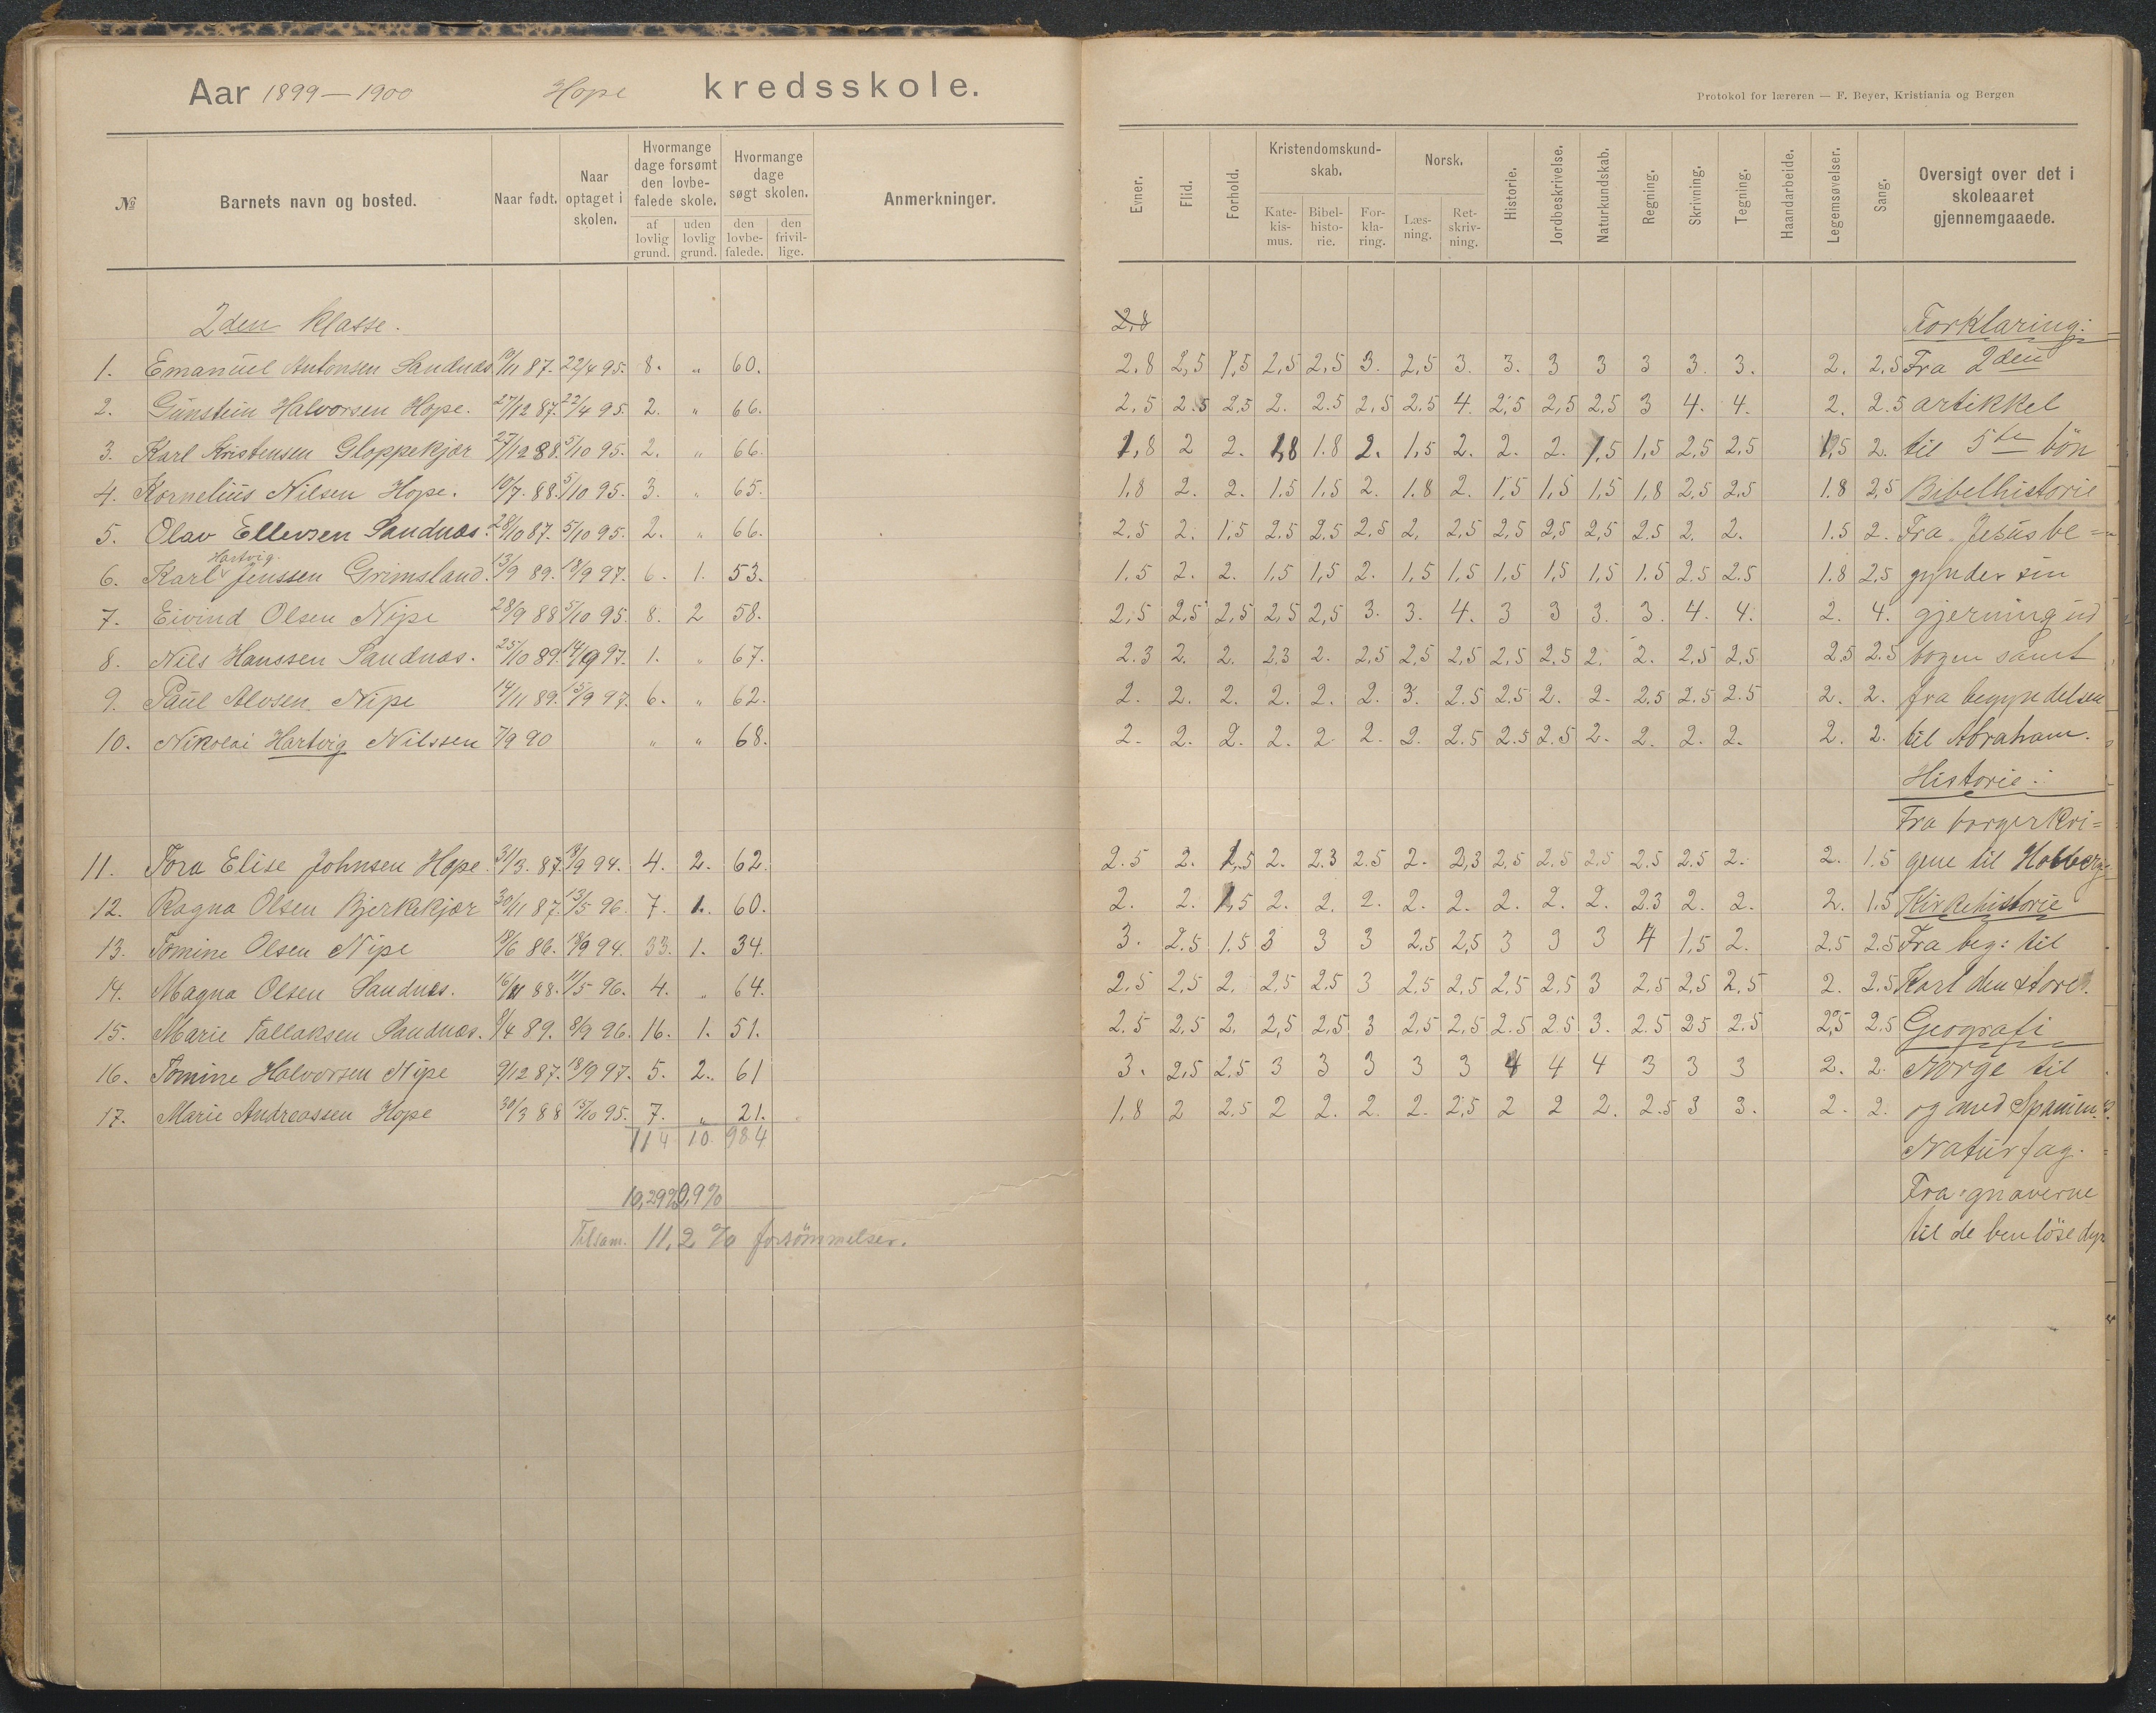 Aar 1899–1900 Hope kredsskole.
№ Barnets navn og bosted. Naar født. Naar optaget i skolen. Hvormange dage forsømt den lovbefalede skole, af lovlig grund. uden lovlig grund. Hvormange dage søgt skolen. den lovbefalede. den frivillige. Anmerkninger.
2den Klasse.
1. Emanuel Antonsen Sandnæs 19/11 87. 22/4 95. 8. " 60.
2. Gunstein Halvorsen Hope. 27/12 87. 22/4 95. 2. " 66.
3. Karl Kristensen Gloppekjær 27/12 88. 5/10 95. 2. " 66.
4. Kornelius Nilsen Hope. 10/7. 88. 5/10 95. 3. " 65.
5. Olav Ellevsen Sandnæs. 28/10 87. 5/10 95. 2. " 66.
Hartvig
6. Karl Jenssen Grimsland. 13/9 89. 18/9 97. 6. 1. 53.
7. Eivind Olsen Nipe 28/9 88 5/10 95. 8. 2 58.
8. Nils Hanssen Sandnæs. 25/10 89. 14/9 97. 1. " 67.
9. Paul Alvsen Nipe 14/11 89. 15/9 97. 6. " 62.
10. Nikolai Hartvig Nilssen 7/9 90 " " 68.
11. Tora Elise Johnsen Hope. 31/3. 87. 18/9 94. 4. 2. 62.
12. Ragna Olsen Bjerkekjær 30/11 87. 13/5 96. 7. 1. 60.
13. Tomine Olsen Nipe 18/6 86. 18/9 94. 33. 1. 34.
14. Magna Olsen Sandnæs. 16/11 88. 11/5 96. 4. " 64.
15. Marie Tallaksen Sandnæs. 8/4 89. 8/9 96. 16. 1. 51.
16. Tomine Halvorsen Nipe 9/12 87. 18/9 97. 5. 2. 61
17. Marie Andreassen Hope 30/3 88 15/10 95. 7. " 21.
114 10. 984
10,29% 0,9%
Tilsam. 11,2 % forsömmelser.
Protokol for læreren — F. Beyer, Kristiania og Bergen
Evner. Flid. Forhold. Kristendomskundskab. Katekismus. Bibelhistorie. Forklaring. Norsk. Læsning. Retskrivning. Historie. Jordbeskrivelse. Naturkundskab. Regning. Skrivning. Tegning. Haandarbeide. Legemsøvelser. Sang. Oversigt over det i skoleaaret gjennemgaaede.
2,8 Forklaring:
2.8 2,5 1,5 2,5 2,5 3. 2,5 3. 3. 3 3 3 3. 3. 2. 2.5 Fra 2den
2,5 2.5 2,5 2. 2.5 2,5 2.5 4. 2,5 2,5 2,5 3 4. 4. 2. 2.5 artikkel
1,8 2 2. 1,8 1.8 2. 1,5 2. 2. 2. 1,5 1,5 2,5 2,5 1,5 2. til 5te bön
1.8 2. 2. 1.5 1.5 2. 1.8 2. 1,5 1,5 1,5 1,8 2,5 2,5 1.8 2,5 Bibelhistorie
2.5 2. 1,5 2.5 2,5 2,5 2, 2,5 2,5 2,5 2,5 2.5 2. 2. 1.5 2. Fra Jesus be=
1.5 2. 2. 1,5 1,5 2. 1,5 1,5 1,5 1,5 1,5 1.5 2.5 2.5 1.8 2,5 gynder sin
2,5 2,5 2,5 2,5 2,5 3. 3. 4. 3 3 3. 3. 4. 4. 2. 4. gjerning ud
2.3 2. 2. 2.3 2. 2,5 2,5 2,5 2,5 2.5 2. 2. 2,5 2,5 2,5 2.5 bogen samt
2. 2. 2. 2. 2. 2. 3. 2.5 2.5 2. 2. 2,5 2.5 2.5 2. 2. fra begyndelsen
2. 2. 2. 2. 2 2. 2. 2.5 2.5 2.5 2. 2. 2. 2. 2. 2. til Abraham.
Historie:
Fra borgerkri=
2.5 2. 1,5 2. 2.3 2.5 2. 2,3 2,5 2,5 2,5 2.5 2.5 2. 2. 1.5 gene til Holberg
2. 2. 1,5 2. 2. 2. 2. 2. 2. 2. 2. 2.3 2. 2. 2. 1.5 Kirkehistorie
3. 2.5 1.5 3 3 3 2.5 2,5 3 3 3 4 1,5 2. 2.5 2.5 Fra beg: til
2.5 2.5 2. 2,5 2.5 3 2.5 2.5 2,5 2,5 3 2.5 2,5 2,5 2. 2.5 Karl den store.
2.5 2,5 2. 2,5 2,5 3 2,5 2,5 2.5 2.5 3. 2.5 2.5 2.5 2,5 2.5 Geografi
3. 2.5 2.5 3 3 3 3 3 4 4 4 3 3 3 2. 2. Norge til
1,8 2 2.5 2 2. 2. 2. 2,5 2 2 2. 2.5 3 3. 2. 2. og med Spanien.
Naturfag.
Fra gnaverne
til de benlöse dyr